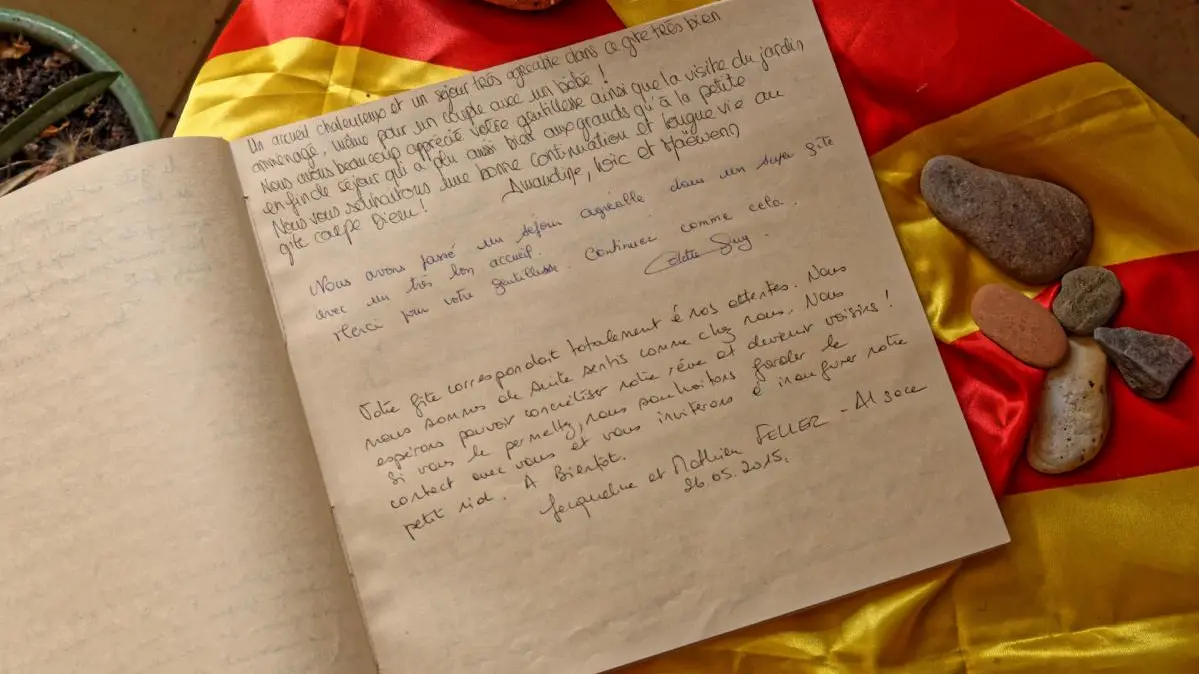 Un accueil chaleureux et un séjour très agréable dans ce gîte très bien
aménagé, même pour un couple avec un bébé !
Nous avons beaucoup apprécié votre gentillesse ainsi que la visite du jardin
en fin de séjour qui a plu aussi bien aux grands qu'à la petite
Nous vous souhaitons une bonne continuation et longue vie au
gîte carpe Diem !
Amandine, Loïc et Maëwenn
Nous avons passé un séjour agréable dans un super gîte
avec un très bon accueil.
Merci pour votre gentillesse. Continuez comme cela.
Colette
Votre gîte correspondait totalement à nos attentes. Nous
nous sommes de suite sentis comme chez nous. Nous
espérons pouvoir concrétiser notre rêve et devenir voisins !
Si vous le permettez, nous souhaitons garder le
contact avec vous et vous inviterons à inaugurer notre
petit nid. A Bientôt.
Jacqueline et Mathieu FELLER - Alsace
26.05.2015.